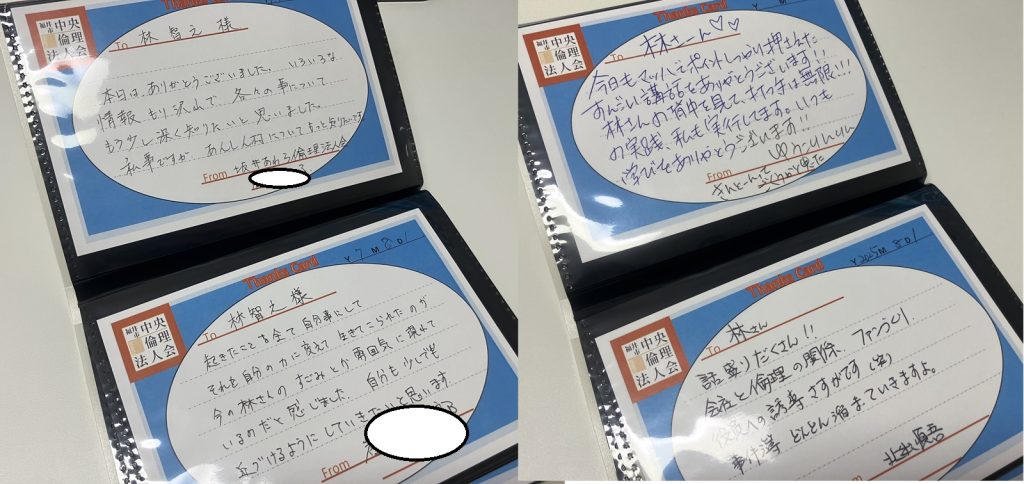 Thanks Card
福井市
中央
倫理
法人会
To 林 智之 様
本日は、ありがとうございました。いろいろな
情報もり沢山で、各々の事について
もう少し深く知りたいと思いました。
私事ですが、あんしん村についてもっと知りたいです
From 坂井あわら倫理法人会
Thanks Card
福井市
中央
倫理
法人会
To 林さーん♡♡
今日もマッハでポイントしっかり押さえた
すんごい講話をありがとうございます!!
林さんの背中を見て、
は無限!!!
の実践、私も実行してます。いつも
学びをありがとうございます!!
From
Thanks Card
Y 7 M 8 D 1
福井市
中央
倫理
法人会
To 林智之 様
起きたことを全て自分事にして
それを自分の力に変えて生きてこられたのが
今の林さんのすごみとか雰囲気に現れて
いるのだと感じました。自分も少しでも
近づけるようにしていきたいと思います
From
Thanks Card
Y 2025 M 8 D 1
福井市
中央
倫理
法人会
To 林さん
話盛りだくさん!!
会社と倫理の関係 ファンづくり
役員への誘導さすがです(笑)
どんどん溜まっていきますよ。
From 北出慎吾